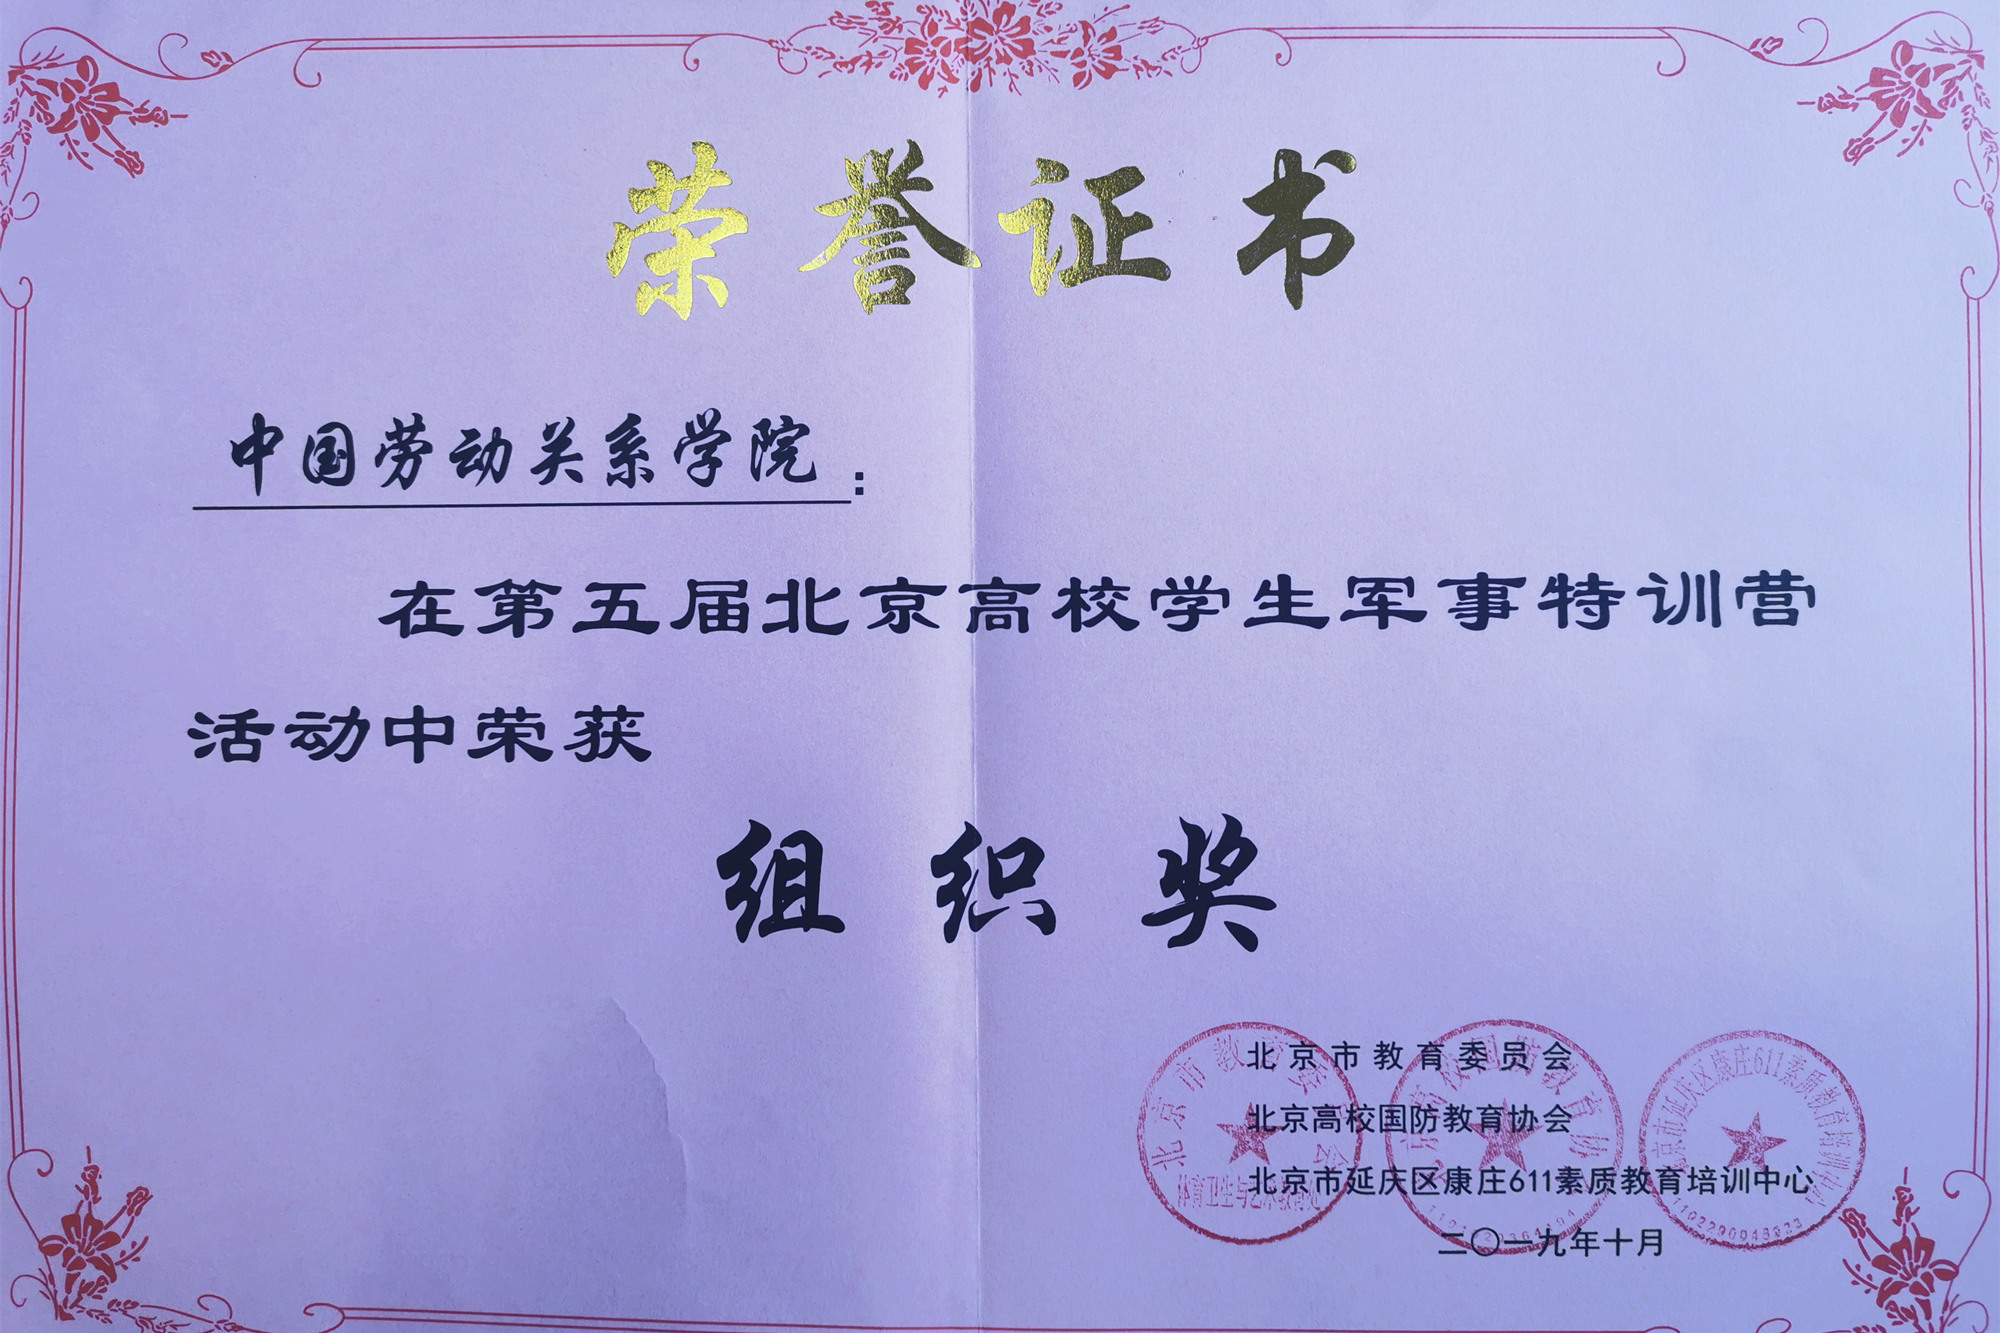 荣誉证书
中国劳动关系学院：
在第五届北京高校学生军事特训营
活动中荣获
组织奖
北京市教育委员会
北京高校国防教育协会
北京市延庆区康庄611素质教育培训中心
二〇一九年十月